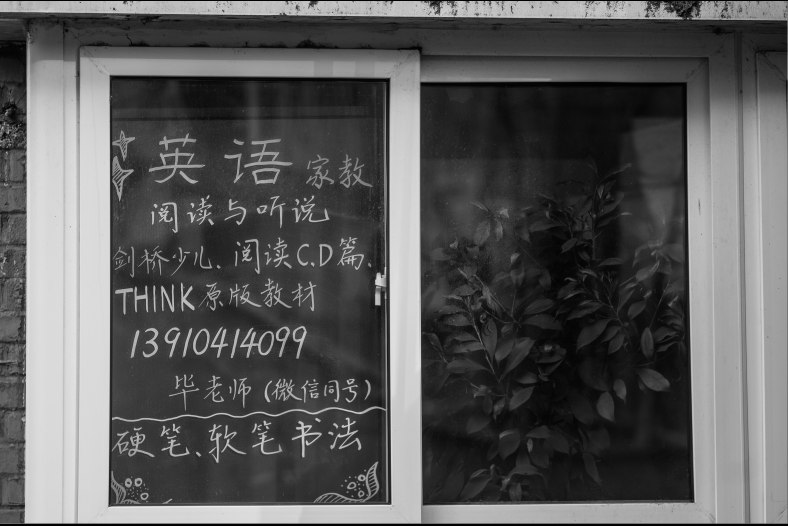 英语 家教
阅读与听说
剑桥少儿、阅读C.D篇、
THINK原版教材
13910414099
毕老师(微信同号)
硬笔、软笔书法